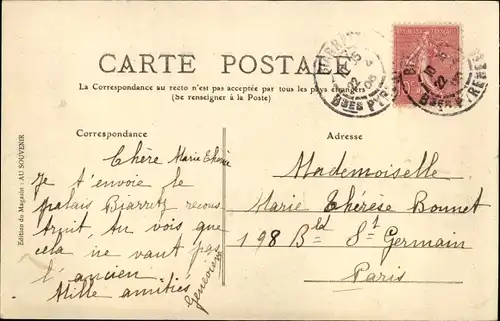 CARTE POSTALE
La Correspondance au recto n'est pas acceptée par tous les pays étrangers
(Se renseigner à la Poste)
Correspondance
Adresse
Chère Marie Thérèse
Je t'envoie le
palais Biarritz recons
truit, tu vois que
cela ne vaut pas
l'ancien
Mille amitiés
Geneviève
Mademoiselle
Marie Thérèse Bonnet
198 Bld St Germain
Paris
Edition du Magasin : AU SOUVENIR
BSES PYRENEES